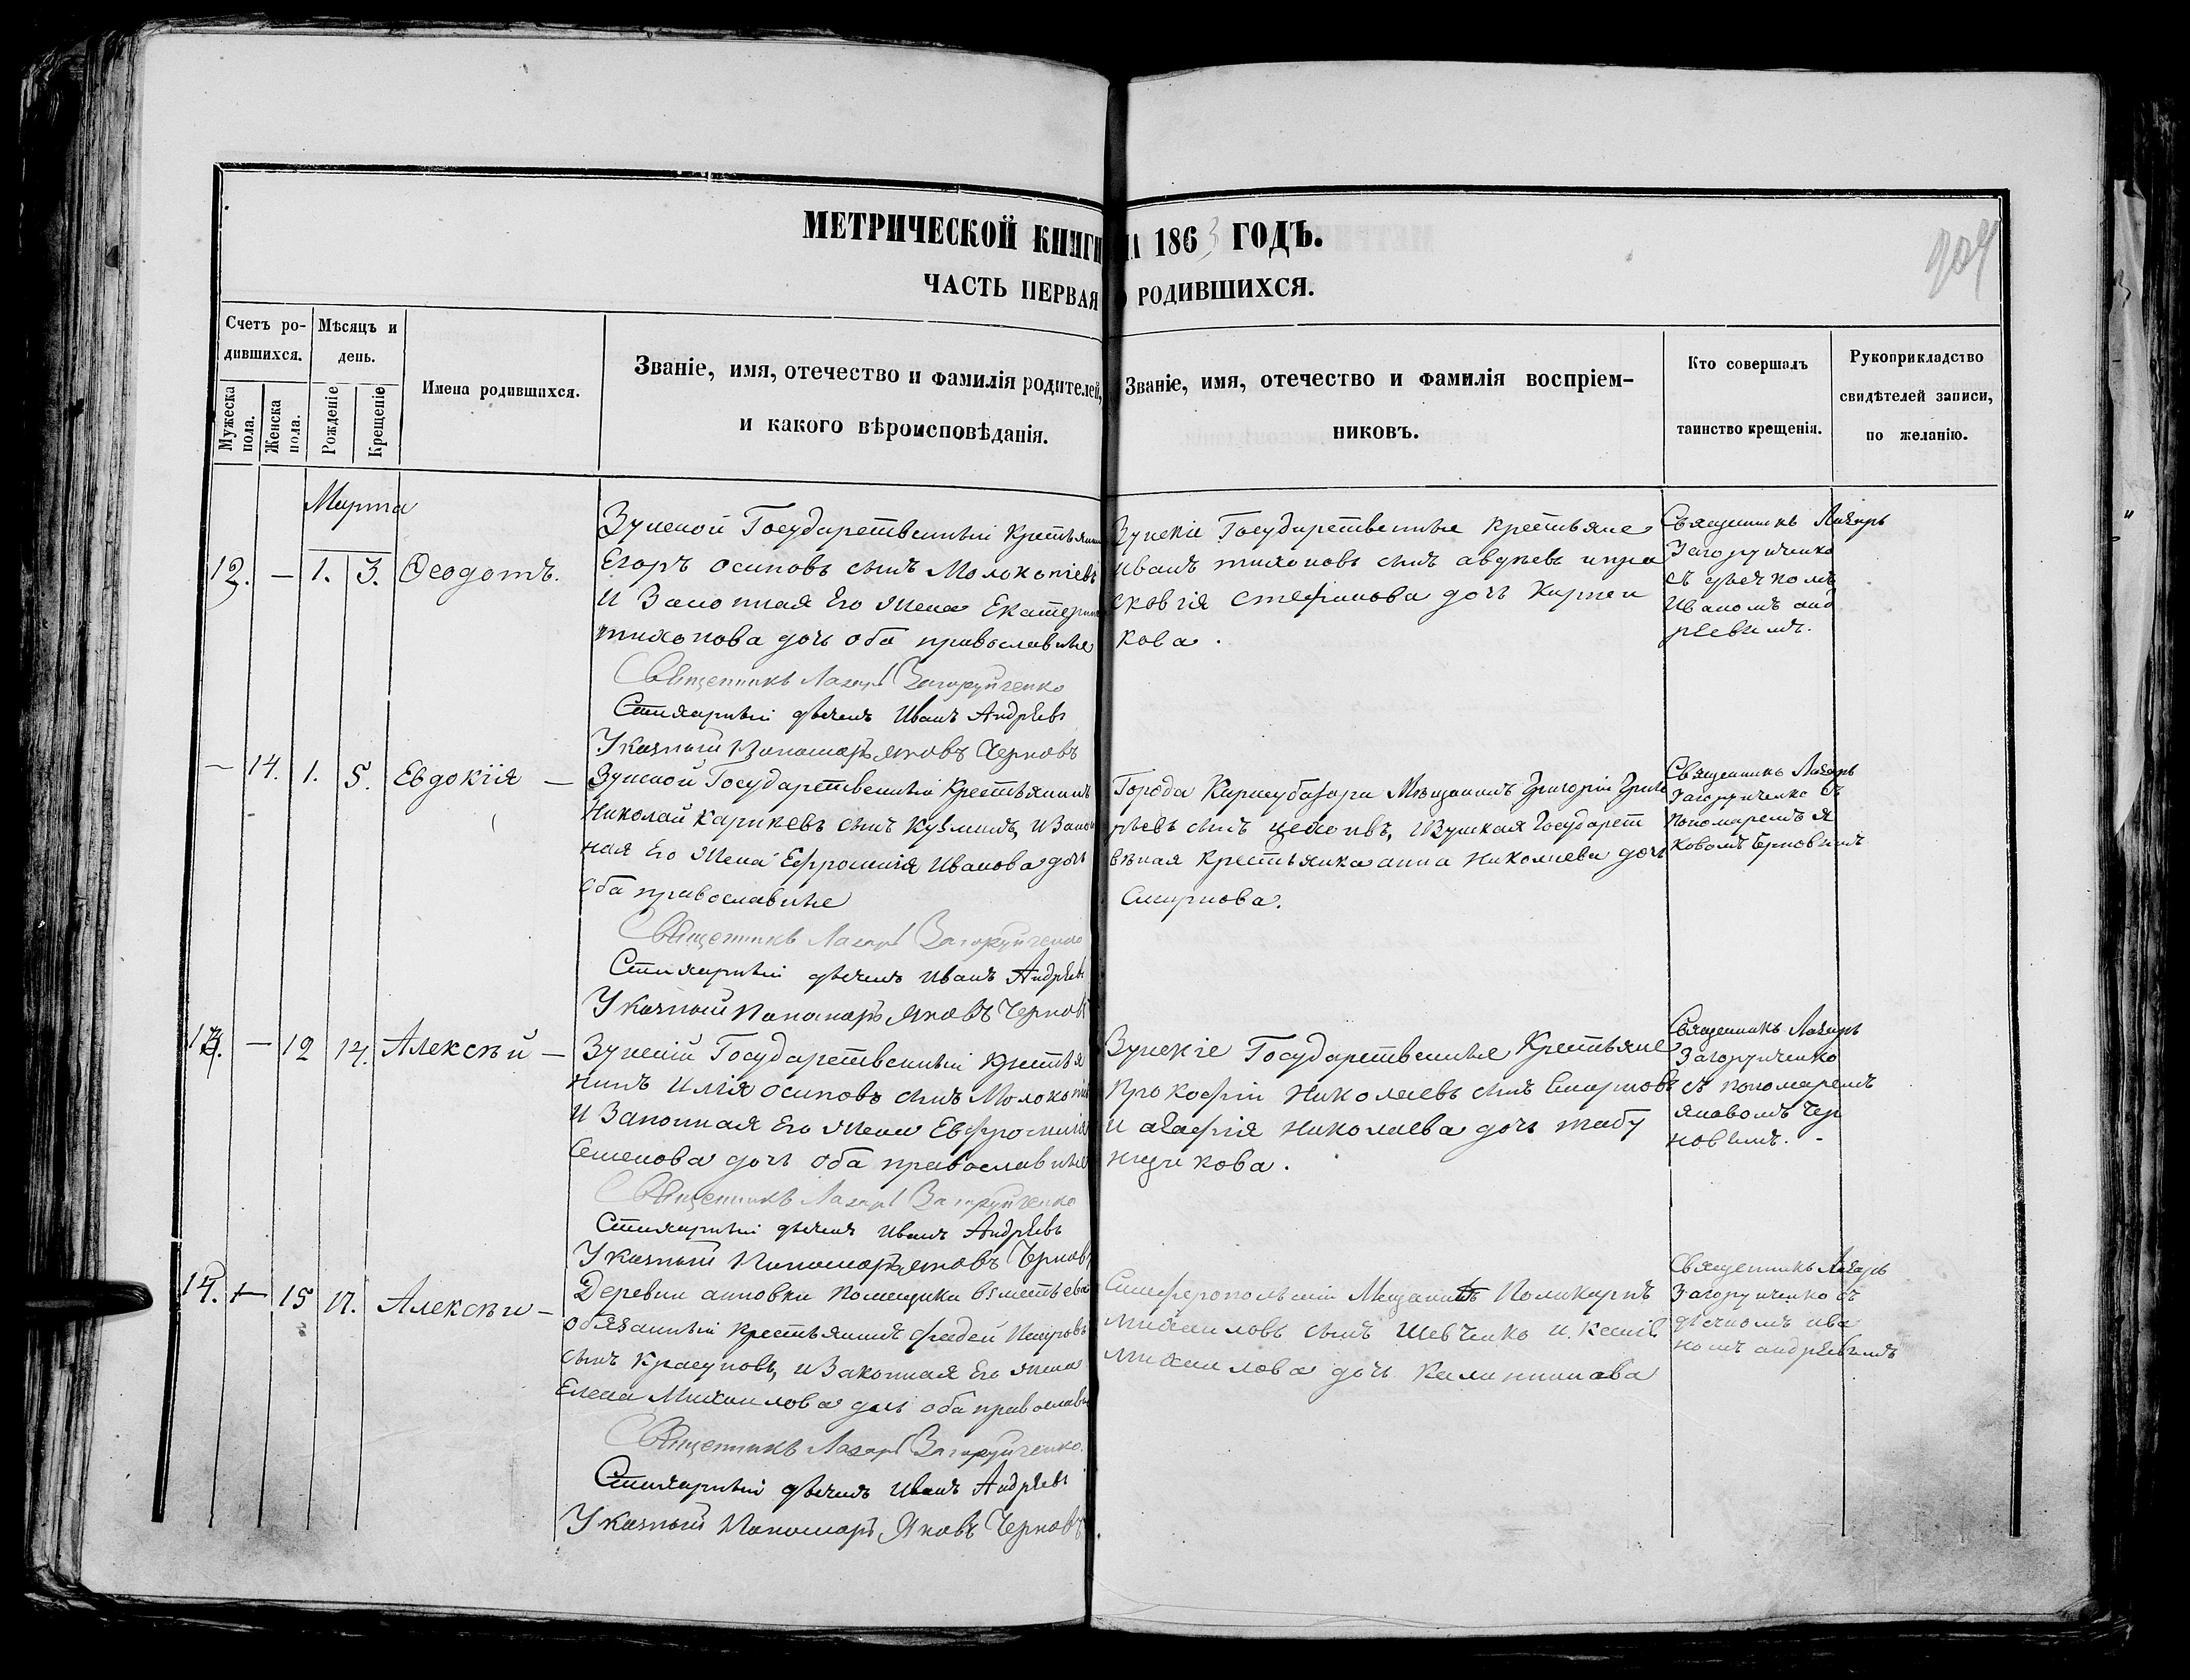 МЕТРИЧЕСКОЙ КНИГИ НА 1863 ГОДЪ.
ЧАСТЬ ПЕРВАЯ О РОДИВШИХСЯ.
Счетъ ро-
дившихся.
Мужеска
пола.
Женска
пола.
Мѣсяцъ и
день.
Рожденіе
Крещеніе
Имена родившихся.
Званіе, имя, отечество и фамилія родителей,
и какого вѣроисповѣданія.
Званіе, имя, отечество и фамилія воспріем-
никовъ.
Кто совершалъ
таинство крещенія.
Рукоприкладство
свидѣтелей записи,
по желанію.
Марта
12. — 1. 3. Ѳеодотъ.
Зуйской Государственный Крестьянинъ
Егоръ Осиповъ сынъ
И Законная Его Жена Екатерина
тихонова дочь оба православные
Священникъ Лазарь Загоруйченко
Стихарный дьячекъ Иванъ Андрѣевъ
Указный Пономарь Яковъ Черновъ
Зуйскіе Государственные Крестьяне
Иванъ тихоновъ сынъ авдѣевъ и пра
сковія стефанова дочь
кова.
Священникъ Лазарь
Загоруйченко
съ дьячкомъ
Иваномъ анд
рѣевымъ.
— 14. 1. 5. Евдокїя —
Зуйской Государственный Крестьянинъ
Николай сынъ Кузминъ, и Закон
ная Его Жена Ефросинія Иванова дочь
оба православные
Священникъ Лазарь Загоруйченко
Стихарный дьячекъ Иванъ Андрѣевъ
Указный Пономарь Яковъ Черновъ
Города Карасубазара Мѣщанинъ Григорій Григо
рьевъ сынъ и Зуйская Государст
вѣная Крестьянка анна Николаева дочь
Смирнова.
Священникъ Лазарь
Загоруйченко съ
пономаремъ Я
ковомъ Черновымъ
13. — 12 14. Алексѣй —
Зуйскій Государственный Крестья
нинъ Илія Осиповъ сынъ
И Законная Его Жена Евфросинія
Семенова дочь оба православные
Священникъ Лазарь Загоруйченко
Стихарный дьячекъ Иванъ Андрѣевъ
Указный Пономарь Яковъ Черновъ
Зуйскіе Государственные Крестьяне
Прокофій Николаевъ сынъ Смирновъ
И агафія Николаева дочь табу
нщикова.
Священникъ Лазарь
Загоруйченко
съ пономаремъ
яковомъ Чер
новымъ. -
14. — 15 17. Алексѣй —
Деревни анновки Помещика
обязанный Крестьянинъ фадей
сынъ и Законная Его жена
Елена Михаилова дочь оба православны
Священникъ Лазарь Загоруйченко.
Стихарный дьячекъ Иванъ Андрѣевъ
Указный Пономарь Яковъ Черновъ.
Симферопольскій Мещанинъ Поликарпъ
михаиловъ сынъ Шевченко и
михаилова дочь Калинникова
Священникъ Лазарь
Загоруйченко съ
дьячкомъ ива
номъ андрѣевымъ